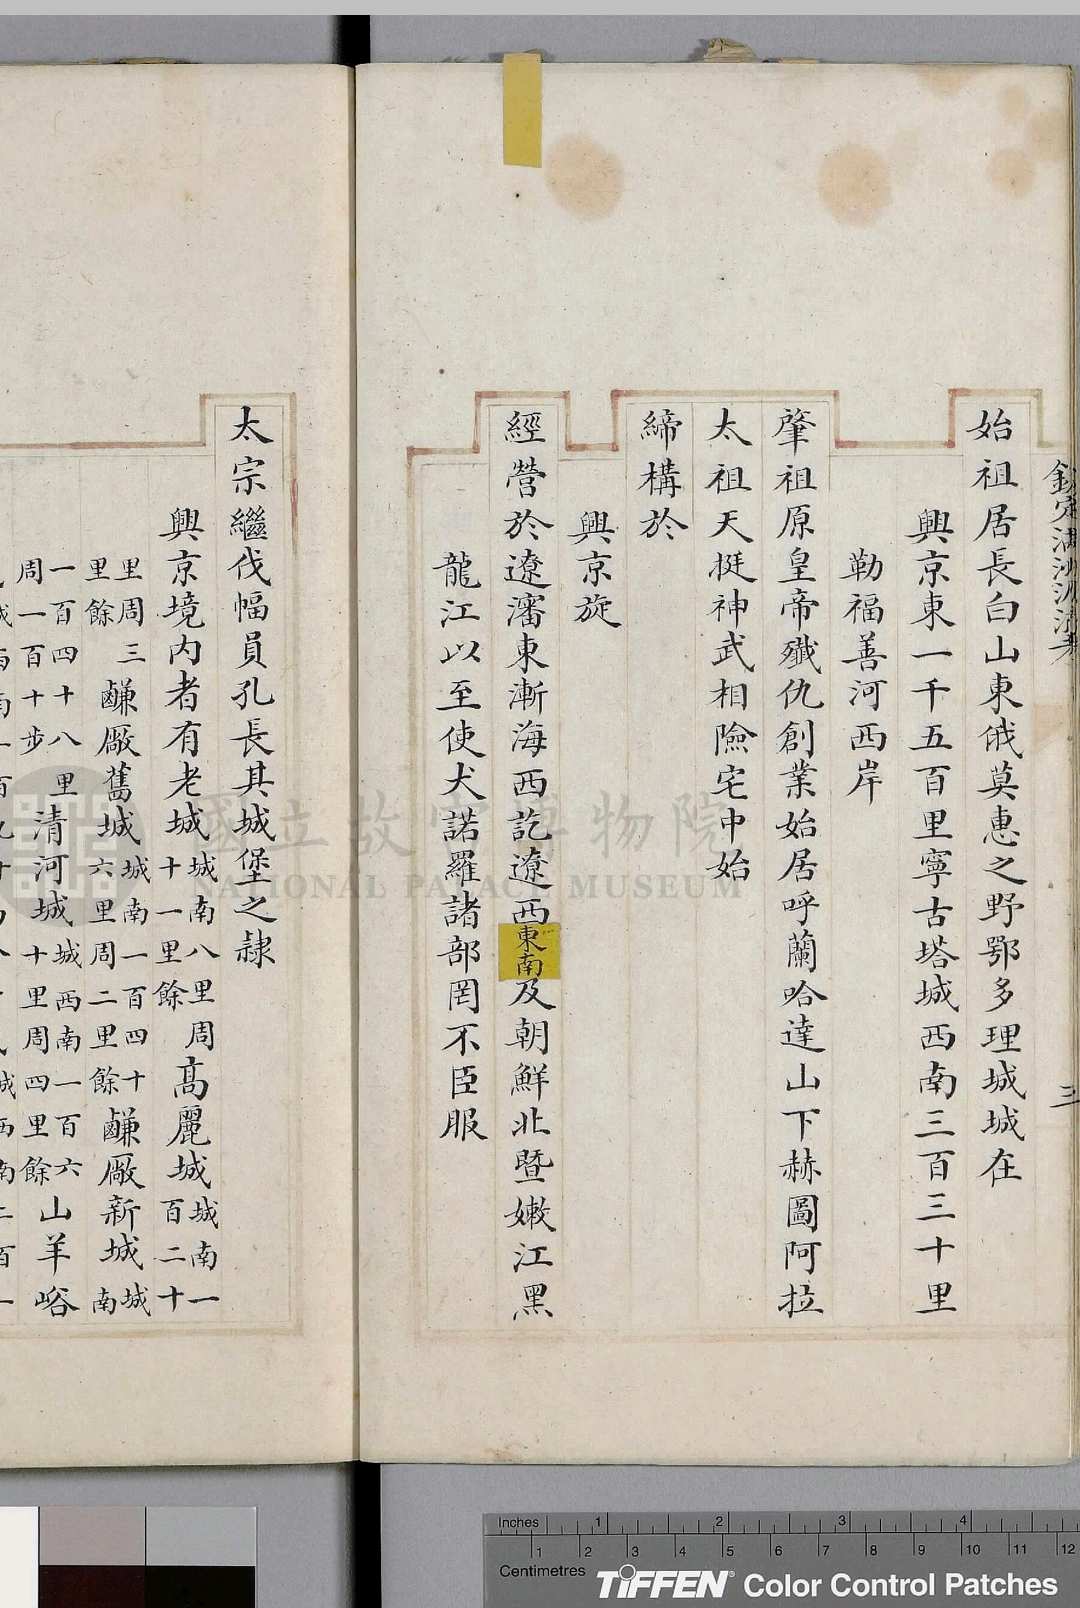 始祖居長白山東俄莫惠之野鄂多理城城在
興京東一千五百里寧古塔城西南三百三十里
勒福善河西岸
肇祖原皇帝殲仇創業始居呼蘭哈達山下赫圖阿拉
太祖天挺神武相險宅中始
締構於
興京旋
經營於遼瀋東漸海西訖遼西東南及朝鮮北暨嫩江黑
龍江以至使犬諾羅諸部罔不臣服
太宗繼伐幅員孔長其城堡之隸
興京境内者有老城城南八里周十一里餘高麗城城南一百二十
里周三里餘鹻厰舊城城南一百四十六里周二里餘鹻厰新城城南
一百四十八里周一百十步清河城城西南一百六十里周四里餘山羊峪
三
國立故宮博物院
NATIONAL PALACE MUSEUM
Inches 1 2 3 4
1 2 3 4 5 6 7 8 9 10 11 12
Centimetres
TIFFEN® Color Control Patches